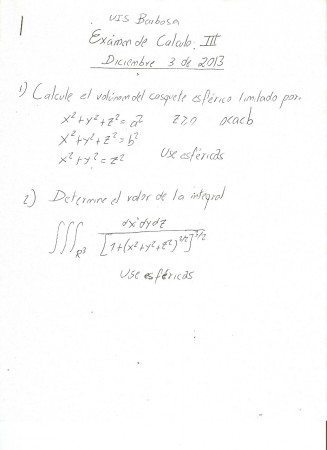 UIS Barbosa
Exámen de Calculo III
Diciembre 3 de 2013
1) Calcule el volúmen del casquete esférico limitado por.
x²+y²+z²=a² z≥0 0<a<b
x²+y²+z²=b²
x²+y²=z² Use esféricas
2) Determine el valor de la integral
∭_R³ dx dy dz / [1+(x²+y²+z²)^(3/2)]^(3/2)
Use esféricas